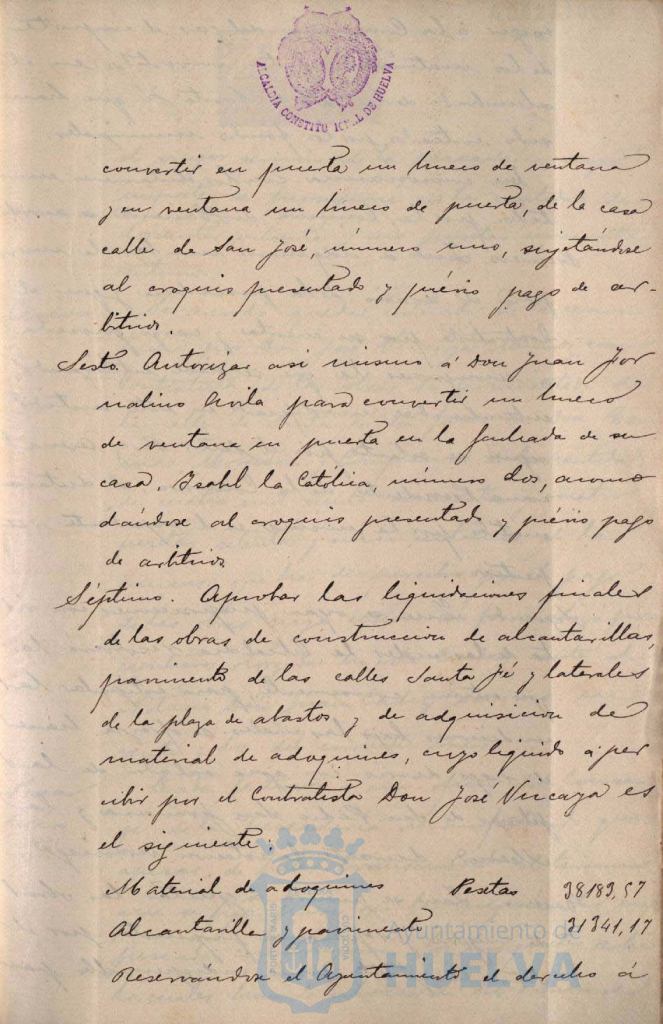 ALCALDIA CONSTITUCIONAL DE HUELVA
convertir en puerta un hueco de ventana
y en ventana un hueco de puerta, de la casa
calle de San José, número uno, sujetándose
al croquis presentado y prévio pago de ar-
bitrios.
Sesto. Autorizar asi mismo á Don Juan Jor
nalino Avila para convertir un hueco
de ventana en puerta en la fachada de su
casa, Isabel la Católica, número dos, acomo
dándose al croquis presentado y prévio pago
de arbitrios
Séptimo. Aprobar las liquidaciones finales
de las obras de construccion de alcantarillas,
pavimento de las calles Santa Fé y laterales
de la plaza de abastos y de adquisicion de
material de adoquines, cuyo liquido a per
cibir por el Contratista Don José Vizcaya es
el siguiente:
Material de adoquines Pesetas 38189,57
Alcantarilla y pavimento 21341,17
Reservándose el Ayuntamiento el derecho á
Ayuntamiento de
HUELVA